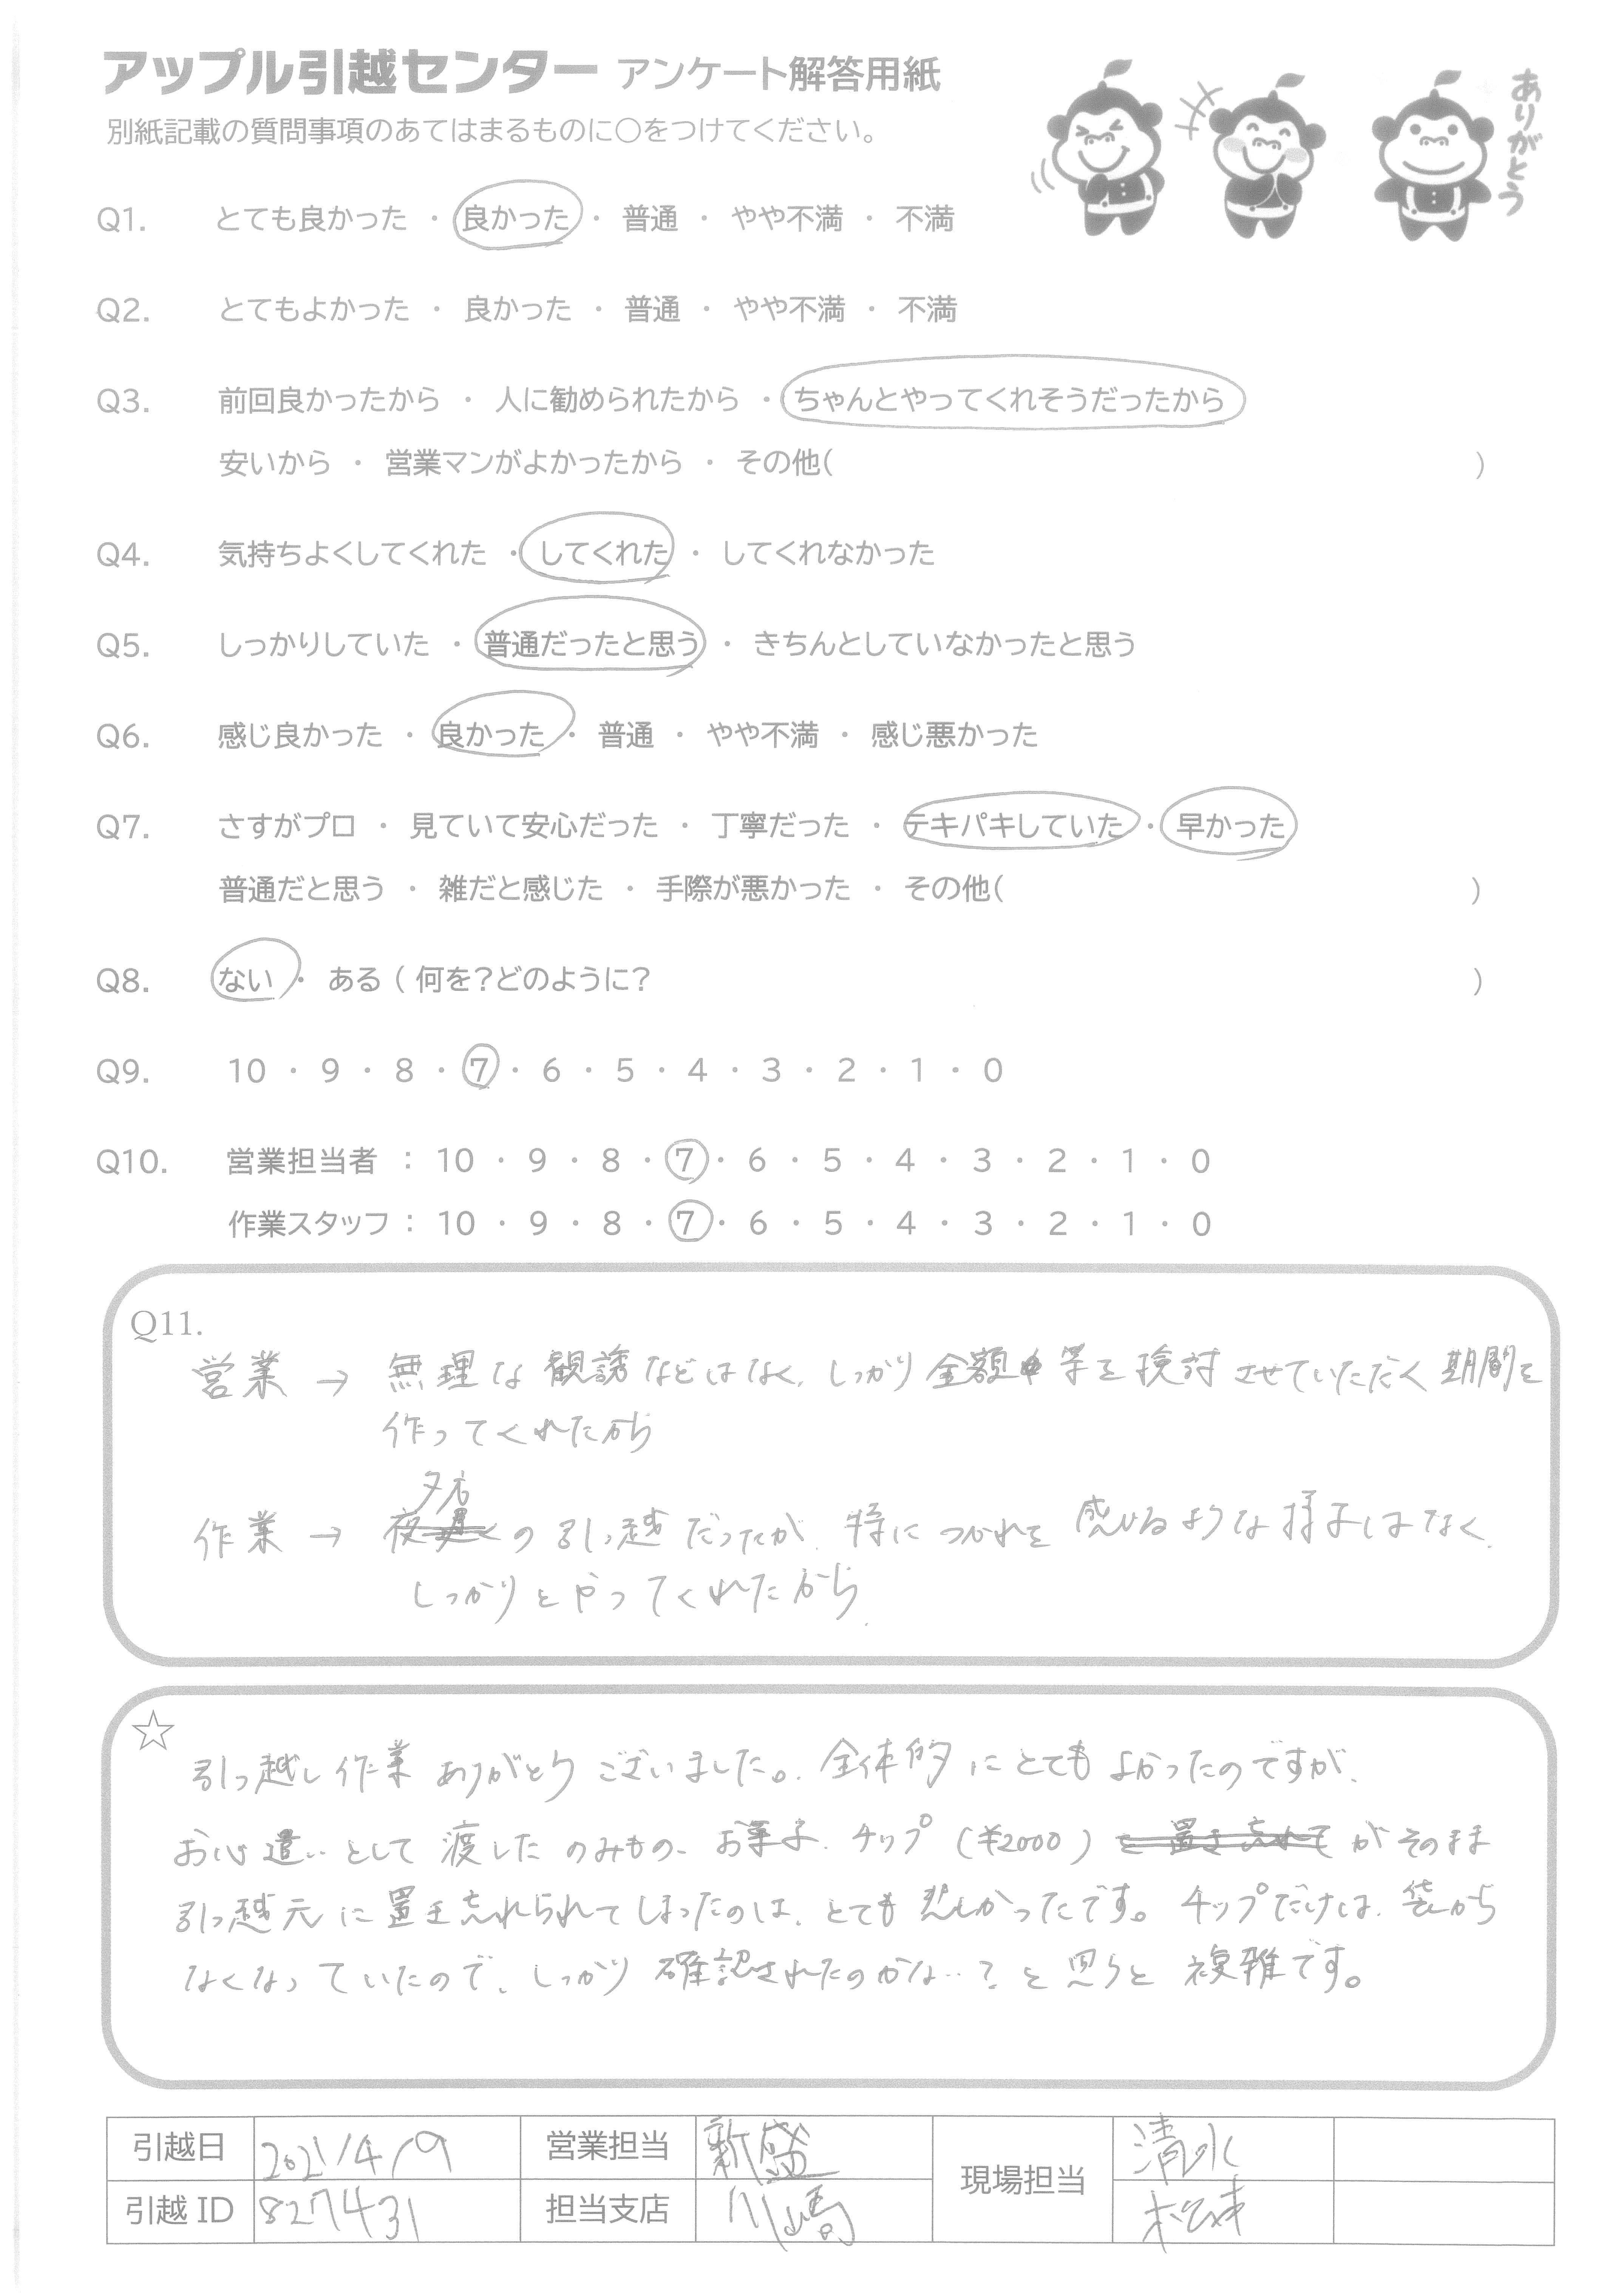 アップル引越センター アンケート解答用紙
別紙記載の質問事項のあてはまるものに○をつけてください。
ありがとう
Q1. とても良かった ・ 良かった ・ 普通 ・ やや不満 ・ 不満
Q2. とてもよかった ・ 良かった ・ 普通 ・ やや不満 ・ 不満
Q3. 前回良かったから ・ 人に勧められたから ・ ちゃんとやってくれそうだったから
安いから ・ 営業マンがよかったから ・ その他( )
Q4. 気持ちよくしてくれた ・ してくれた ・ してくれなかった
Q5. しっかりしていた ・ 普通だったと思う ・ きちんとしていなかったと思う
Q6. 感じ良かった ・ 良かった ・ 普通 ・ やや不満 ・ 感じ悪かった
Q7. さすがプロ ・ 見ていて安心だった ・ 丁寧だった ・ テキパキしていた ・ 早かった
普通だと思う ・ 雑だと感じた ・ 手際が悪かった ・ その他( )
Q8. ない ・ ある ( 何を?どのように? )
Q9. 10 ・ 9 ・ 8 ・ 7 ・ 6 ・ 5 ・ 4 ・ 3 ・ 2 ・ 1 ・ 0
Q10. 営業担当者 : 10 ・ 9 ・ 8 ・ 7 ・ 6 ・ 5 ・ 4 ・ 3 ・ 2 ・ 1 ・ 0
作業スタッフ : 10 ・ 9 ・ 8 ・ 7 ・ 6 ・ 5 ・ 4 ・ 3 ・ 2 ・ 1 ・ 0
Q11.
営業 → 無理な観誘などはなく、しっかり金額等を検討させていただく期間を
作ってくれたから
夕方
作業 → の引っ越だったが、特につかれを感じるような様子はなく、
しっかりとやってくれたから.
☆
引っ越し作業ありがとうございました。全体的にとてもよかったのですが、
お心遣いとして渡したのみもの、お菓子、チップ(¥2000)がそのまま
引っ越元に置き忘れられてしまったのは、とても悲しかったです。チップだけは、袋から
なくなっていたので、しっかり確認されたのかな…?と思うと複雑です。
引越日 2021/4/9 営業担当 新盛 現場担当 清水
引越 ID 827431 担当支店 川崎